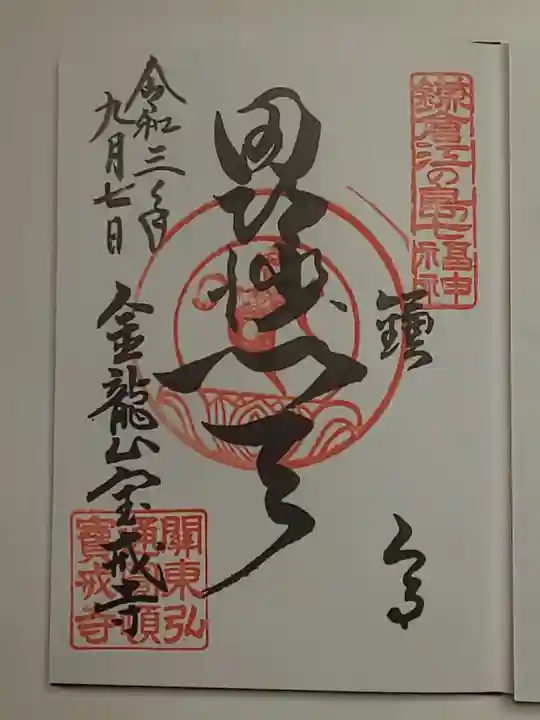 鎌倉江の島七福神
鎌
倉
毘沙门天
令和三年
九月七日
金龍山宝戒寺
關東弘
通
頂
寳戒寺